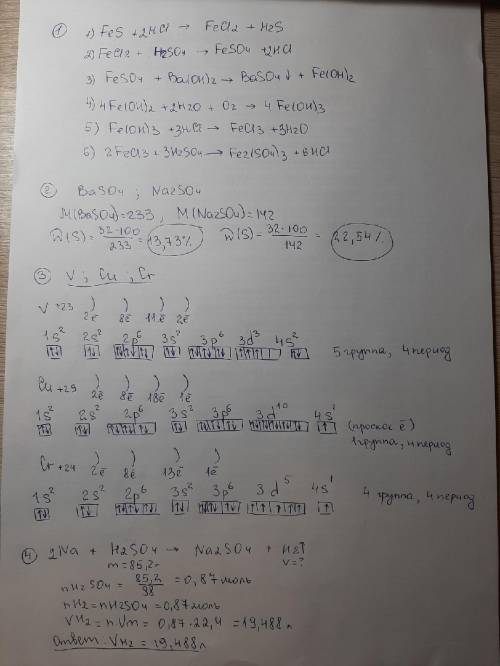 ① 1) FeS + 2HCl → FeCl2 + H2S
2) FeCl2 + H2SO4 → FeSO4 + 2HCl
3) FeSO4 + Ba(OH)2 → BaSO4↓ + Fe(OH)2
4) 4Fe(OH)2 + 2H2O + O2 → 4Fe(OH)3
5) Fe(OH)3 + 3HCl → FeCl3 + 3H2O
6) 2FeCl3 + 3H2SO4 → Fe2(SO4)3 + 6HCl
② BaSO4 ; Na2SO4
M(BaSO4)=233 , M(Na2SO4)=142
W(S) = 32·100/233 = 13,73% W(S) = 32·100/142 = 22,54%
③ V ; Cu ; Cr
V +23 ) ) ) )
2ē 8ē 11ē 2ē
1s² 2s² 2p⁶ 3s² 3p⁶ 3d³ 4s²
5 группа, 4 период
Cu +29 ) ) ) )
2ē 8ē 18ē 1ē
1s² 2s² 2p⁶ 3s² 3p⁶ 3d¹⁰ 4s¹
(проскок ē)
1 группа, 4 период
Cr +24 ) ) ) )
2ē 8ē 13ē 1ē
1s² 2s² 2p⁶ 3s² 3p⁶ 3d⁵ 4s¹
4 группа, 4 период
④ 2Na + H2SO4 → Na2SO4 + H2↑
m=85,2г V=?
nH2SO4 = 85,2/98 = 0,87 моль
nH2 = nH2SO4 = 0,87 моль
VH2 = n·Vm = 0,87·22,4 = 19,488 л
Ответ: VH2 = 19,488 л